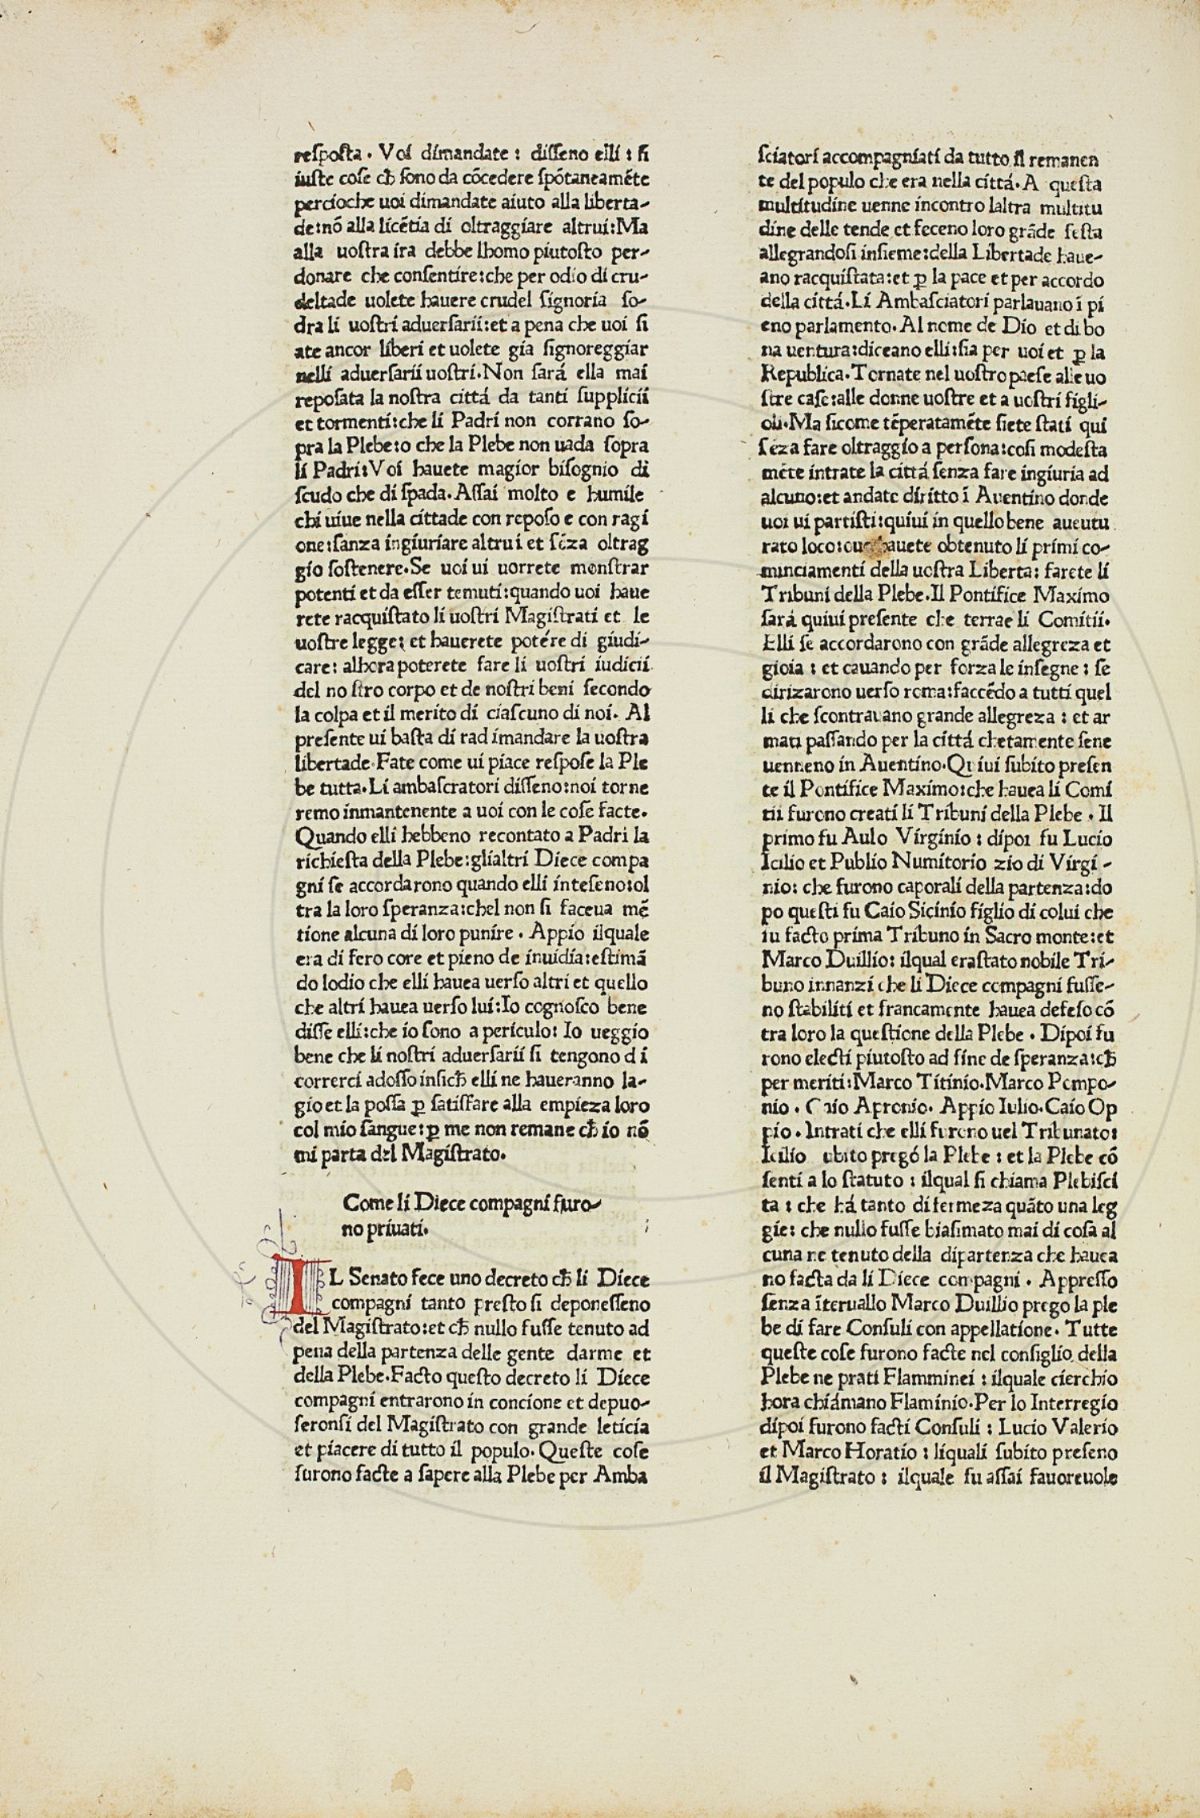 resposta. Voi dimandate: disseno elli: si
iuste cose cħ sono da cōcedere spōtaneamēte
percioche uoi dimandate aiuto alla liberta-
de:nō alla licētia di oltraggiare altrui:Ma
alla uostra ira debbe lhomo piutosto per-
donare che consentire:che per odio di cru-
deltade uolete hauere crudel signoria so-
dra li uostri aduersarii:et a pena che uoi si
ate ancor liberi et uolete gia signoreggiar
nelli aduersarii uostri.Non sará ella mai
reposata la nostra cittá da tanti supplicii
et tormenti:che li Padri non corrano so-
pra la Plebe:o che la Plebe non uada sopra
li Padri:Voi hauete magior bisognio di
scudo che di spada.Assai molto e humile
chi uiue nella cittade con reposo e con ragi
one:sanza ingiuriare altrui et sēza oltrag
gio sostenere.Se uoi ui uorrete monstrar
potenti et da esser temuti:quando uoi haue
rete racquistato li uostri Magistrati et le
uostre legge: et hauerete potére di giudi-
care: alhora poterete fare li uostri iudicii
del no stro corpo et de nostri beni secondo
la colpa et il merito di ciascuno di noi. Al
presente ui basta di rad imandare la uostra
libertade.Fate come ui piace respose la Ple
be tutta.Li ambascratori disseno:noi torne
remo inmantenente a uoi con le cose facte.
Quando elli hebbeno recontato a Padri la
richiesta della Plebe:glialtri Diece compa
gni se accordarono quando elli inteseno:ol
tra la loro speranza:chel non si faceua mē
tione alcuna di loro punire. Appio ilquale
era di fero core et pieno de inuidia:estimā
do lodio che elli hauea uerso altri et quello
che altri hauea uerso lui:Io cognosco bene
disse elli:che io sono a periculo: Io ueggio
bene che li nostri aduersarii si tengono d i
correrci adosso insicħ elli ne haueranno la-
gio et la possa ꝑ satisfare alla empieza loro
col mio sangue:ꝑ me non remane cħ io nō
mi parta del Magistrato.
Come li Diece compagni furo-
no priuati.
IL Senato fece uno decreto cħ li Diece
compagni tanto presto si deponesseno
del Magistrato:et cħ nullo fusse tenuto ad
pena della partenza delle gente darme et
della Plebe.Facto questo decreto li Diece
compagni entrarono in concione et depuo-
seronsi del Magistrato con grande leticia
et piacere di tutto il populo.Queste cose
furono facte a sapere alla Plebe per Amba
sciatori accompagniati da tutto il remanen
te del populo che era nella cittá.A questa
multitudine uenne incontro laltra multitu
dine delle tende et feceno loro grāde festa
allegrandosi insieme:della Libertade haue-
ano racquistata:et ꝑ la pace et per accordo
della cittá.Li Ambasciatori parlauano ī pi
eno parlamento.Al nome de Dio et di bo
na uentura:diceano elli:sia per uoi et ꝑ la
Republica.Tornate nel uostro paese alle uo
stre case:alle donne uostre et a uostri figli-
oli.Ma sicome tēperatamēte siete stati qui
sēza fare oltraggio a persona:cosi modesta
mēte intrate la cittá senza fare ingiuria ad
alcuno:et andate diritto ī Auentino donde
uoi ui partisti:quiui in quello bene auuentu
rato loco:oue hauete obtenuto li primi co-
minciamenti della uostra Liberta: farete li
Tribuni della Plebe.Il Pontifice Maximo
sará quiui presente che terrae li Comitii.
Elli se accordarono con grāde allegreza et
gioia : et cauando per forza le insegne : se
dirizarono uerso roma:faccēdo a tutti quel
li che scontrauano grande allegreza : et ar
mati passando per la cittá chetamente sene
uenneno in Auentino.Quiui subito presen
te il Pontifice Maximo:che hauea li Comi
tii furono creati li Tribuni della Plebe . Il
primo fu Aulo Virginio : dipoi fu Lucio
Icilio et Publio Numitorio zio di Virgi -
nio: che furono caporali della partenza:do
po questi fu Caio Sicinio figlio di colui che
fu facto prima Tribuno in Sacro monte:et
Marco Duillio: ilqual erastato nobile Tri-
buno innanzi che li Diece compagni fusse-
no stabiliti et francamente hauea defeso cō
tra loro la questione della Plebe . Dipoi fu
rono electi piutosto ad fine de speranza:cħ
per meriti:Marco Titinio.Marco Pompo-
nio . Caio Apronio. Appio Iulio.Caio Op
pio . Intrati che elli furono nel Tribunato:
Icilio subito pregó la Plebe : et la Plebe cō
senti a lo statuto : ilqual si chiama Plebisci
ta : che há tanto di fermeza quāto una leg
gie: che nullo fusse biasimato mai di cosa al
cuna ne tenuto della dipartenza che hauea
no facta da li Diece compagni . Appresso
senza īteruallo Marco Duillio prego la ple
be di fare Consuli con appellatione. Tutte
queste cose furono facte nel consiglio della
Plebe ne prati Flamminei : ilquale cierchio
hora chiámano Flaminio.Per lo Interregio
dipoi furono facti Consuli : Lucio Valerio
et Marco Horatio : liquali subito preseno
il Magistrato : ilquale fu assai fauoreuole